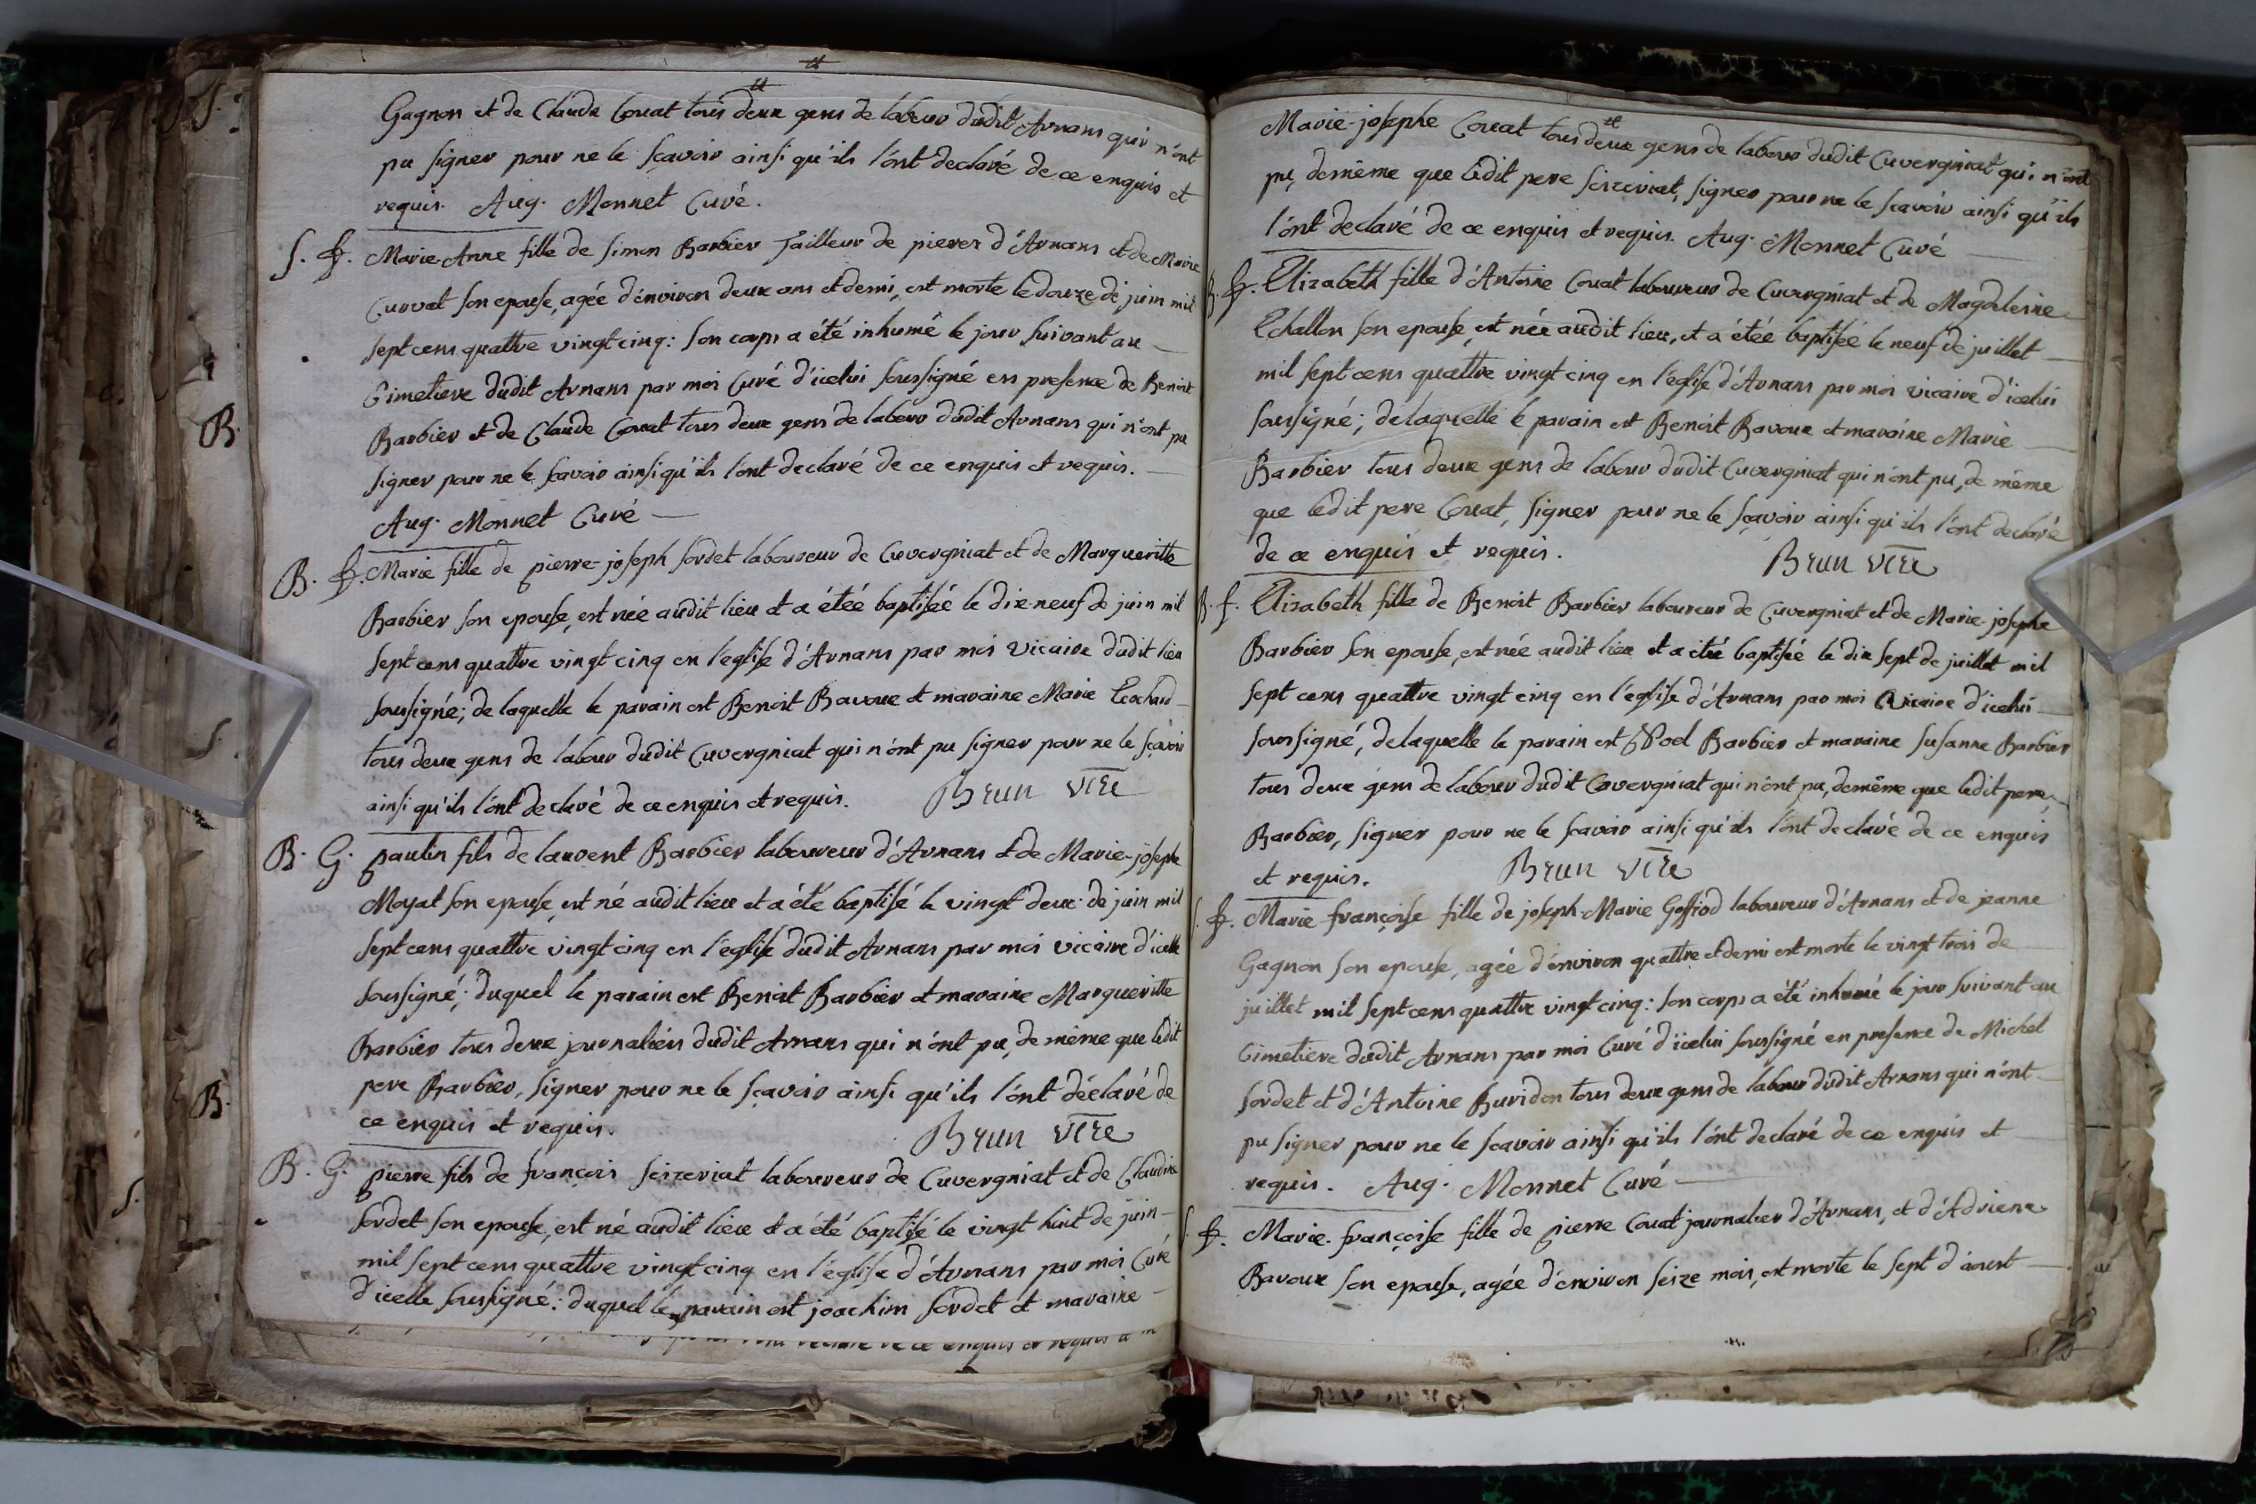 Gagnon et de Claude Couat tous deux gens de labour dudit Arnans qui n'ont
pu signer pour ne le sçavoir ainsi qu'ils l'ont declaré de ce enquis et
requis. Aug. Monnet Curé.
S. f. Marie-Anne fille de simon Barbier Tailleur de pierres d'Arnans et de Marie
Curvat son epouse, agée d'environ deux ans et demi, est morte le douze de juin mil
sept cens quattre vingt cinq: son corps a été inhumé le jour suivant au
Cimetiere dudit Arnans par moi Curé d'icelui soussigné en presence de Benoit
Barbier et de Claude Couat tous deux gens de labour dudit Arnans qui n'ont pu
signer pour ne le sçavoir ainsi qu'ils l'ont declaré de ce enquis et requis.
Aug. Monnet Curé
B. f. Marie fille de pierre-joseph sordet laboureur de Cuvergniat et de Margueritte
Barbier son epouse, est née audit lieu et a étée baptisée le dix-neuf de juin mil
sept cens quattre vingt cinq en l'eglise d'Arnans par moi vicaire dudit lieu
soussigné; de laquelle le parain est Benoit Bavoux et maraine Marie
tous deux gens de labour dudit Cuvergniat qui n'ont pu signer pour ne le sçavoir
ainsi qu'ils l'ont declaré de ce enquis et requis. Brun vire
B. G. paulin fils de laurent Barbier laboureur d'Arnans et de Marie-josephe
Moyat son epouse, est né audit lieu et a été baptisé le vingt deux de juin mil
sept cens quattre vingt cinq en l'église dudit Arnans par moi vicaire d'icelle
soussigné; duquel le parain est Benoit Barbier et maraine Margueritte
Barbier tous deux journaliers dudit Arnans qui n'ont pu, de même que ledit
pere Barbier, signer pour ne le sçavoir ainsi qu'ils l'ont déclaré de
ce enquis et requis. Brun vire
B. G. pierre fils de francois seizeriat laboureur de Cuvergniat et de Claudine
sordet son epouse, est né audit lieu et a été baptisé le vingt huit de juin
mil sept cens quattre vingt cinq en l'église d'Arnans par moi Curé
d'icelle soussigné: duquel le parain est joachim sordet et maraine
Marie-josephe Couat tous deux gens de labour dudit Cuvergniat qui n'ont
pu, demême que ledit pere seizeriat, signer pour ne le sçavoir ainsi qu'ils
l'ont declaré de ce enquis et requis. Aug. Monnet Curé
B. f. Elizabeth fille d'Antoine Couat laboureur de Cuvergniat et de Magdeleine
Echallon son epouse, est née audit lieu, et a étée baptisée le neuf de juillet
mil sept cens quattre vingt cinq en l'église d'Arnans par moi vicaire d'icelui
soussigné; de laquelle le parain est Benoit Bavoux et maraine Marie
Barbier tous deux gens de labour dudit Cuvergniat qui n'ont pu, de même
que ledit pere Couat, signer pour ne le sçavoir ainsi qu'ils l'ont declaré
de ce enquis et requis. Brun vire
B. f. Elizabeth fille de Benoit Barbier laboureur de Cuvergniat et de Marie-josephe
Barbier son epouse, est née audit lieu et a étée baptisée le dix sept de juillet mil
sept cens quattre vingt cinq en l'église d'Arnans par moi vicaire d'icelui
soussigné, de laquelle le parain est Noel Barbier et maraine susanne Barbier
tous deux gens de labour dudit Cuvergniat qui n'ont pu, demême que ledit pere
Barbier, signer pour ne le sçavoir ainsi qu'ils l'ont declaré de ce enquis
et requis. Brun vire
S. f. Marie françoise fille de joseph-Marie Goffiod laboureur d'Arnans et de jeanne
Gagnon son epouse, agée d'environ quattre et demi est morte le vingt trois de
juillet mil sept cens quattre vingt cinq: son corps a été inhumé le jour suivant au
Cimetiere dudit Arnans par moi Curé d'icelui soussigné en presence de Michel
sordet et d'Antoine Buridon tous deux gens de labour dudit Arnans qui n'ont
pu signer pour ne le sçavoir ainsi qu'ils l'ont declaré de ce enquis et
requis. Aug. Monnet Curé
S. f. Marie-françoise fille de pierre Couat journalier d'Arnans, et d'Adriene
Bavoux son epouse, agée d'environ seize mois, est morte le sept d'aoust